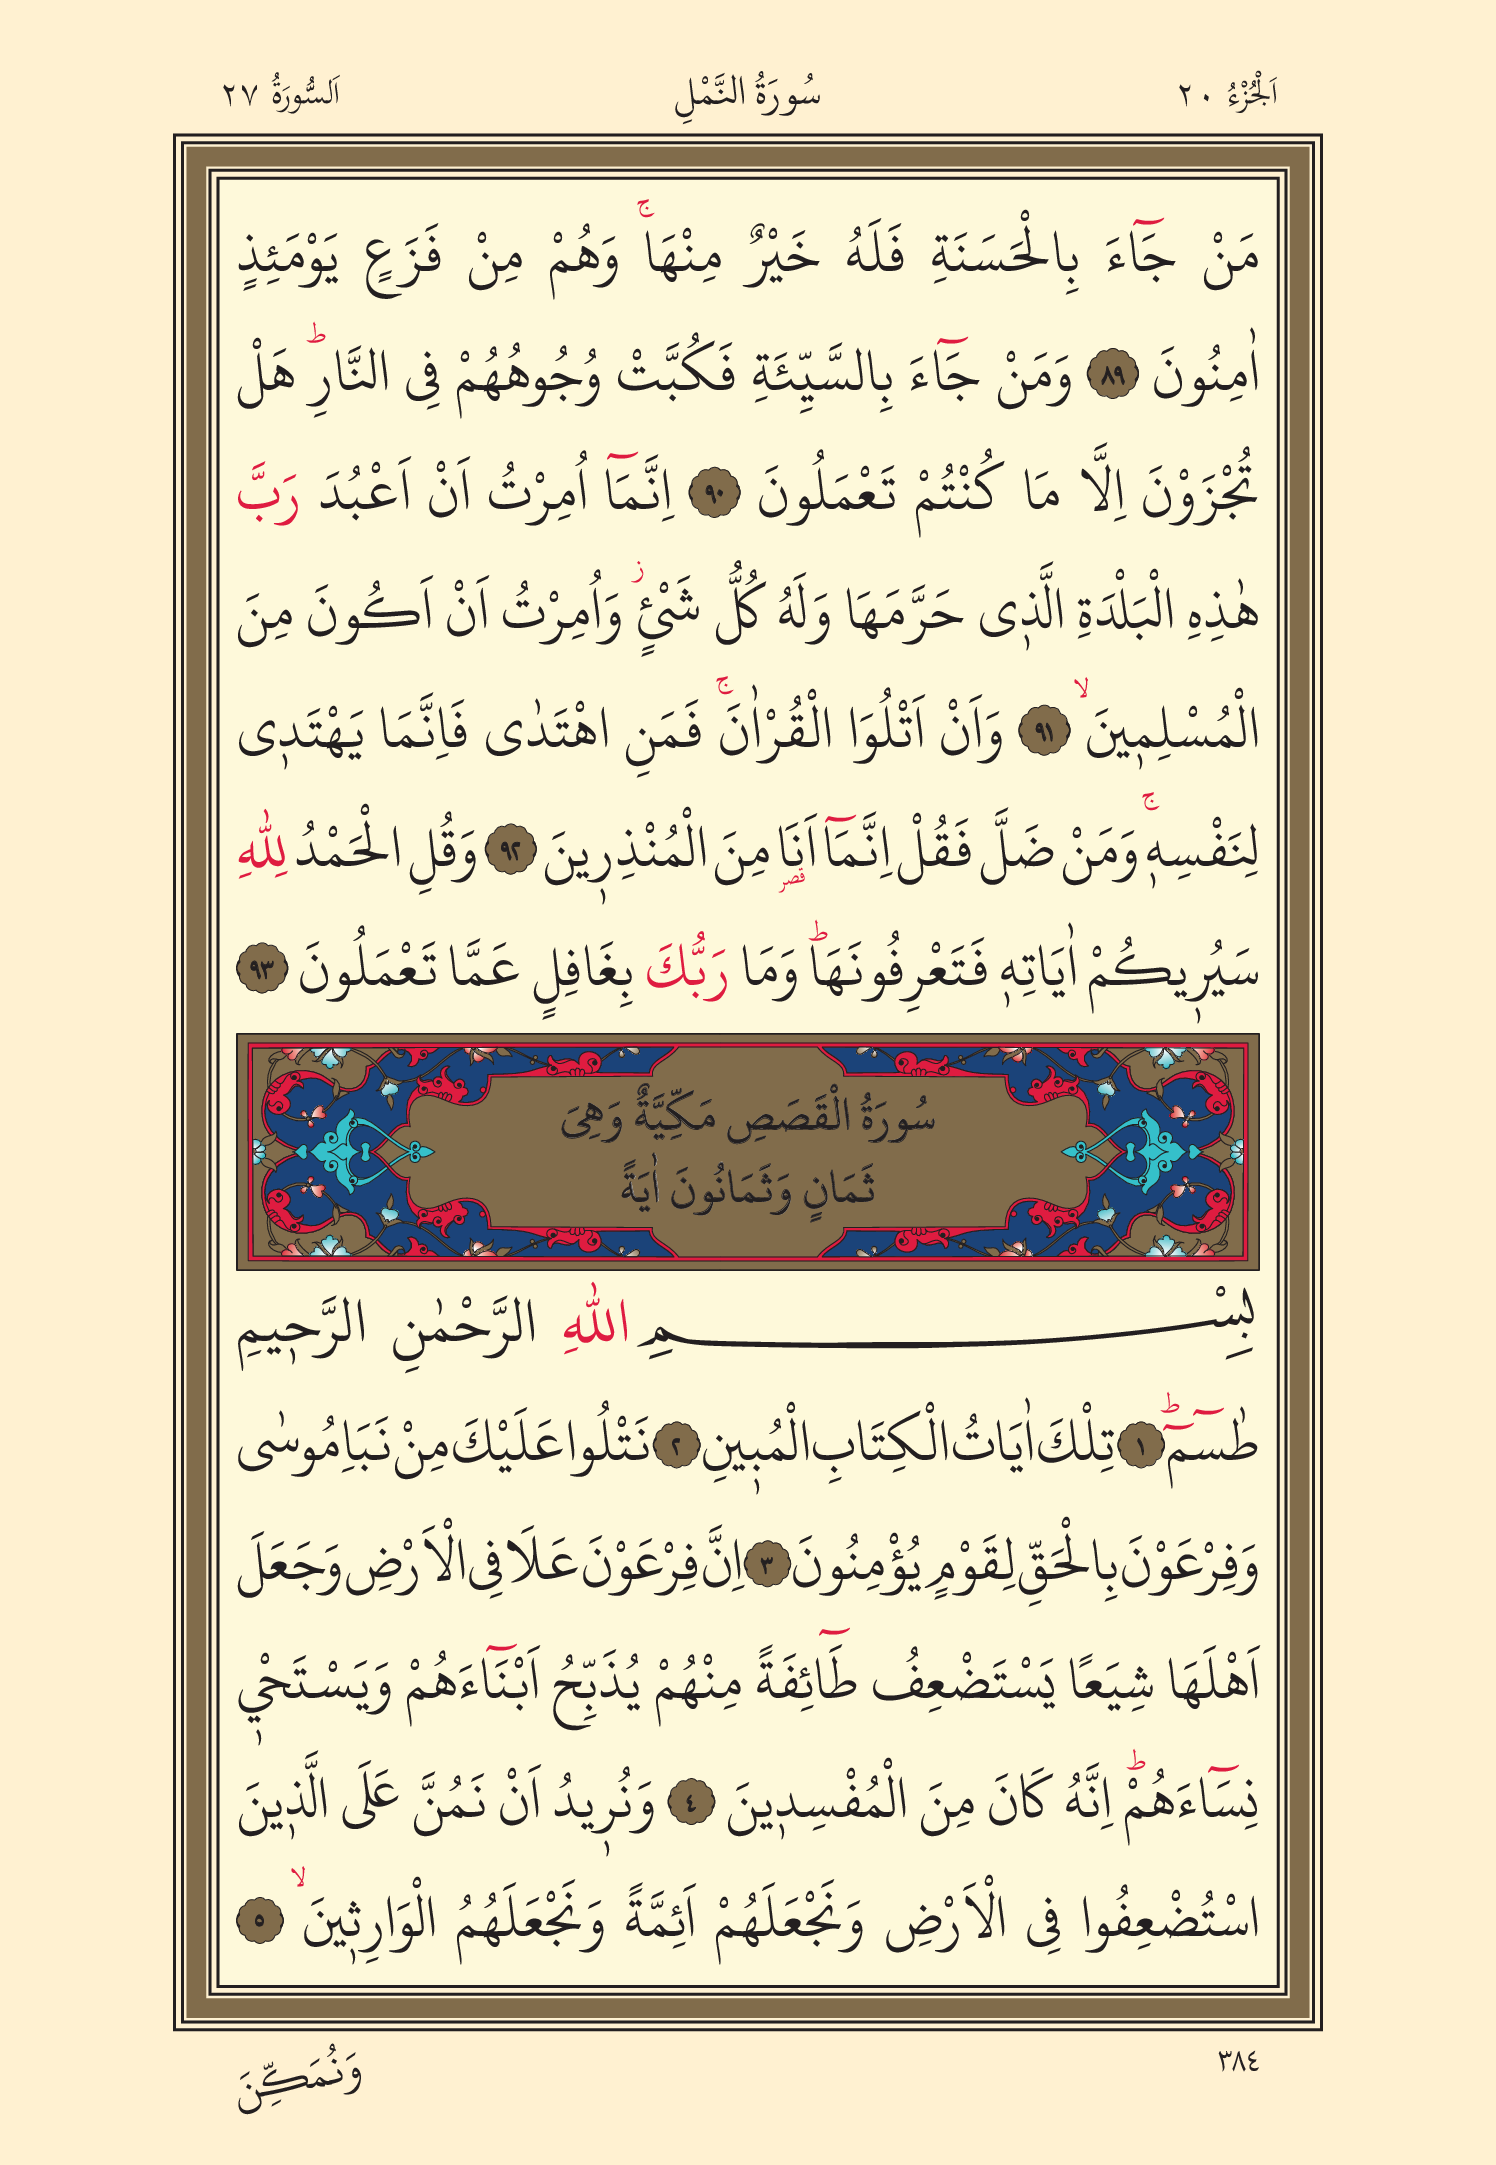 اَلْجُزْءُ ٢٠ سُورَةُ النَّمْلِ اَلسُّورَةُ ٢٧
مَنْ جَٓاءَ بِالْحَسَنَةِ فَلَهُ خَيْرٌ مِنْهَاۚ وَهُمْ مِنْ فَزَعٍ يَوْمَئِذٍ
اٰمِنُونَ ﴿٨٩﴾ وَمَنْ جَٓاءَ بِالسَّيِّئَةِ فَكُبَّتْ وُجُوهُهُمْ فِى النَّارِۜ هَلْ
تُجْزَوْنَ اِلَّا مَا كُنْتُمْ تَعْمَلُونَ ﴿٩٠﴾ اِنَّمَٓا اُمِرْتُ اَنْ اَعْبُدَ رَبَّ
هٰذِهِ الْبَلْدَةِ الَّذ۪ى حَرَّمَهَا وَلَهُ كُلُّ شَىْءٍۘ وَاُمِرْتُ اَنْ اَكُونَ مِنَ
الْمُسْلِم۪ينَۙ ﴿٩١﴾ وَاَنْ اَتْلُوَا الْقُرْاٰنَۚ فَمَنِ اهْتَدٰى فَاِنَّمَا يَهْتَد۪ى
لِنَفْسِه۪ۚ وَمَنْ ضَلَّ فَقُلْ اِنَّمَٓا اَنَا۬ قصر مِنَ الْمُنْذِر۪ينَ ﴿٩٢﴾ وَقُلِ الْحَمْدُ لِلّٰهِ
سَيُر۪يكُمْ اٰيَاتِه۪ فَتَعْرِفُونَهَاۜ وَمَا رَبُّكَ بِغَافِلٍ عَمَّا تَعْمَلُونَ ﴿٩٣﴾
سُورَةُ الْقَصَصِ مَكِّيَّةٌ وَهِىَ
ثَمَانٍ وَثَمَانُونَ اٰيَةً
بِسْمِ اللّٰهِ الرَّحْمٰنِ الرَّح۪يمِ
طٰسٓمٓۜ ﴿١﴾ تِلْكَ اٰيَاتُ الْكِتَابِ الْمُب۪ينِ ﴿٢﴾ نَتْلُوا عَلَيْكَ مِنْ نَبَاِ مُوسٰى
وَفِرْعَوْنَ بِالْحَقِّ لِقَوْمٍ يُؤْمِنُونَ ﴿٣﴾ اِنَّ فِرْعَوْنَ عَلَا فِى الْاَرْضِ وَجَعَلَ
اَهْلَهَا شِيَعًا يَسْتَضْعِفُ طَٓائِفَةً مِنْهُمْ يُذَبِّحُ اَبْنَٓاءَهُمْ وَيَسْتَحْي۪
نِسَٓاءَهُمْۜ اِنَّهُ كَانَ مِنَ الْمُفْسِد۪ينَ ﴿٤﴾ وَنُر۪يدُ اَنْ نَمُنَّ عَلَى الَّذ۪ينَ
اسْتُضْعِفُوا فِى الْاَرْضِ وَنَجْعَلَهُمْ اَئِمَّةً وَنَجْعَلَهُمُ الْوَارِث۪ينَۙ ﴿٥﴾
٣٨٤ وَنُمَكِّنَ